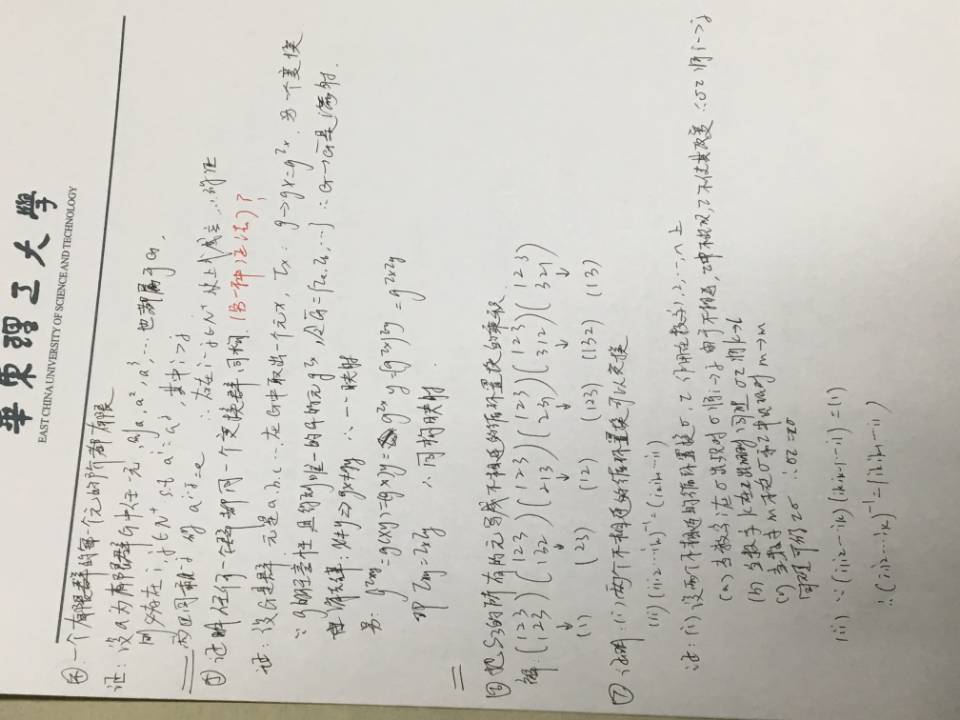 華東理工大學
EAST CHINA UNIVERSITY OF SCIENCE AND TECHNOLOGY
④ 一个有限群的每一个元的阶都有限
证: 设a为有限群G中任一元, 则 a, a², a³, … 也都属于G,
则必存在 i, j∈N⁺ s.t aⁱ=aʲ, 其中 i>j
两边同乘 a⁻ʲ 得 aⁱ⁻ʲ=e ∴存在 i-j∈N⁺ 使上式成立 ∴得证
⑤ 证明任何一个群都同一个变换群同构. (另一种证法)?
证: 设G是群, 元是a.b.c… 在G中取出一个元x, τx: g→gx=g^τx. 另一个变换
∵ g的任意性 且得到唯一的G的元 g^τx, 令G̅={τa,τb,…} ∴G→G̅是满射.
由消去律: x≠y⇒gx≠gy ∴一一映射
另: g^τxy=g(xy)=(gx)y= g^τx y=(g^τx)^τy = g^τxτy
即 τxy=τxτy ∴同构映射.
⑥ 把S3的所有的元写成不相连的循环置换的乘积.
解: (1 2 3) (1 2 3) (1 2 3) (1 2 3) (1 2 3) (1 2 3)
(1 2 3) (1 3 2) (2 1 3) (2 3 1) (3 1 2) (3 2 1)
↓ ↓ ↓ ↓ ↓ ↓
(1) (23) (12) (123) (132) (13)
⑦ 证明: (i) 两个不相连的循环置换可以交换
(ii) (i1i2…ik)⁻¹=(ikik-1…i1)
证: (i) 设两个不相连的循环置换σ, τ 作用在数字1, 2, …, n 上
(a) 当数字i在σ出现时 σ将i→j 由于不相连, τ中不出现, τ不使其改变 ∴στ将i→j
(b) 当数字k在τ出现时 同理 στ将k→l
(c) 当数字m不在σ和τ中出现时 m→m
同理可得τσ ∴στ=τσ
(ii) ∵(i1i2…ik)(ikik-1…i1)=(1)
∴(i1i2…ik)⁻¹=(ikik-1…i1)